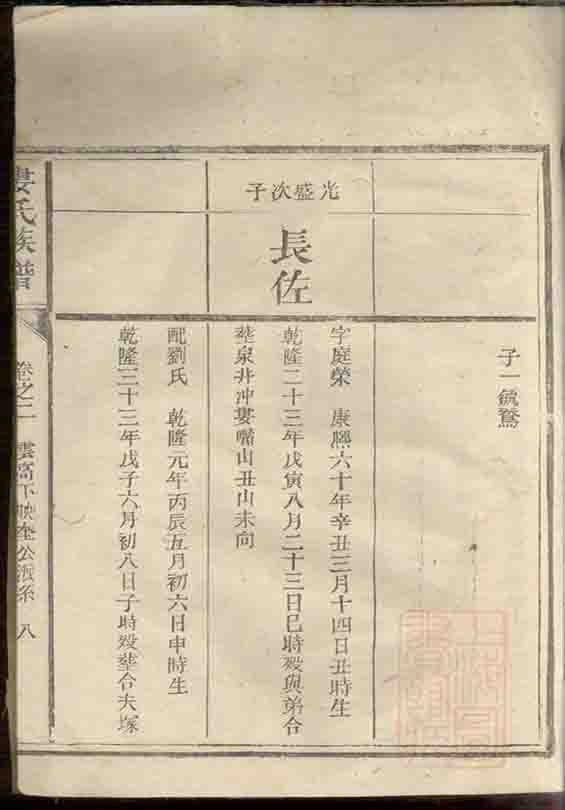 子一毓騖
光盛次子
長佐
字庭榮 康熙六十年辛丑三月十四日丑時生
乾隆二十三年戊寅八月二十三日巳時殁與弟合
塟泉井冲婁嘴山丑山未向
配劉氏 乾隆元年丙辰五月初六日申時生
乾隆三十三年戊子六月初八日子時殁塟合夫塚
婁氏族譜
卷之二
公派系 八